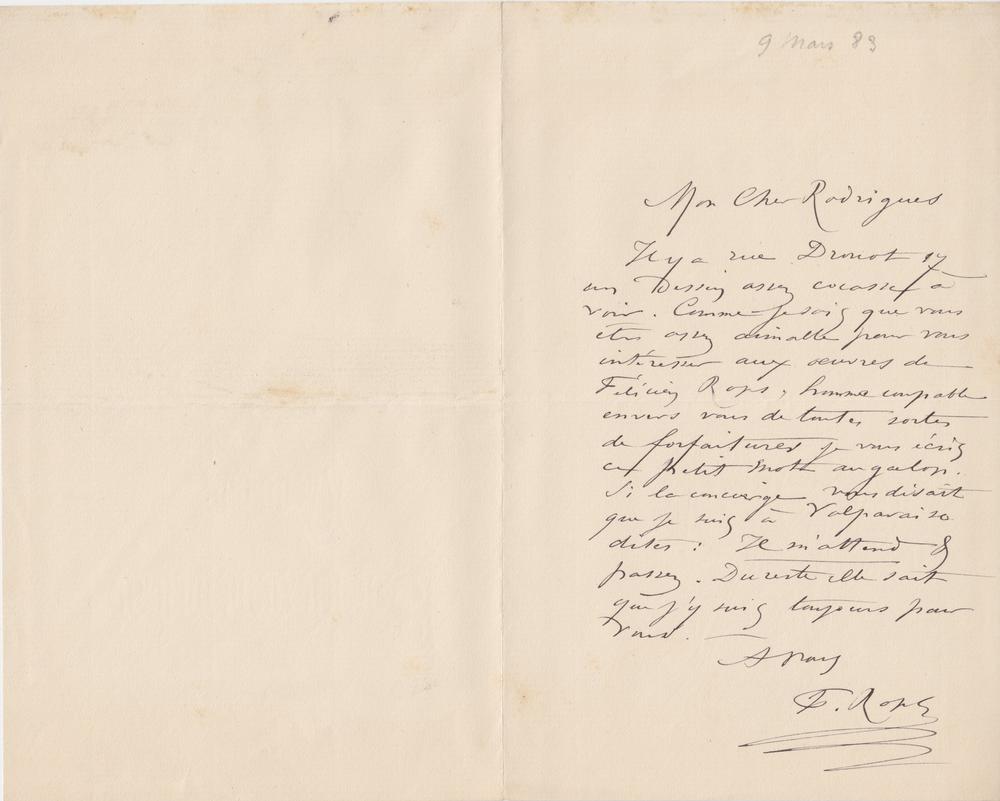 9 Mars 83
Mon Cher Rodrigues
Il y a rue Drouot 17
un Dessin assez cocasse à
voir. Comme je sais que vous
êtes assez aimable pour vous
intéresser aux œuvres de
Félicien Rops, homme coupable
envers vous de toutes sortes
de forfaitures je vous écris
ce petit mot au galop.
Si la concierge vous disait
que je suis à Valparaiso
dites : Il m'attend &
passez. Du reste elle sait
que j'y suis toujours pour
vous.
A vous
F. Rops